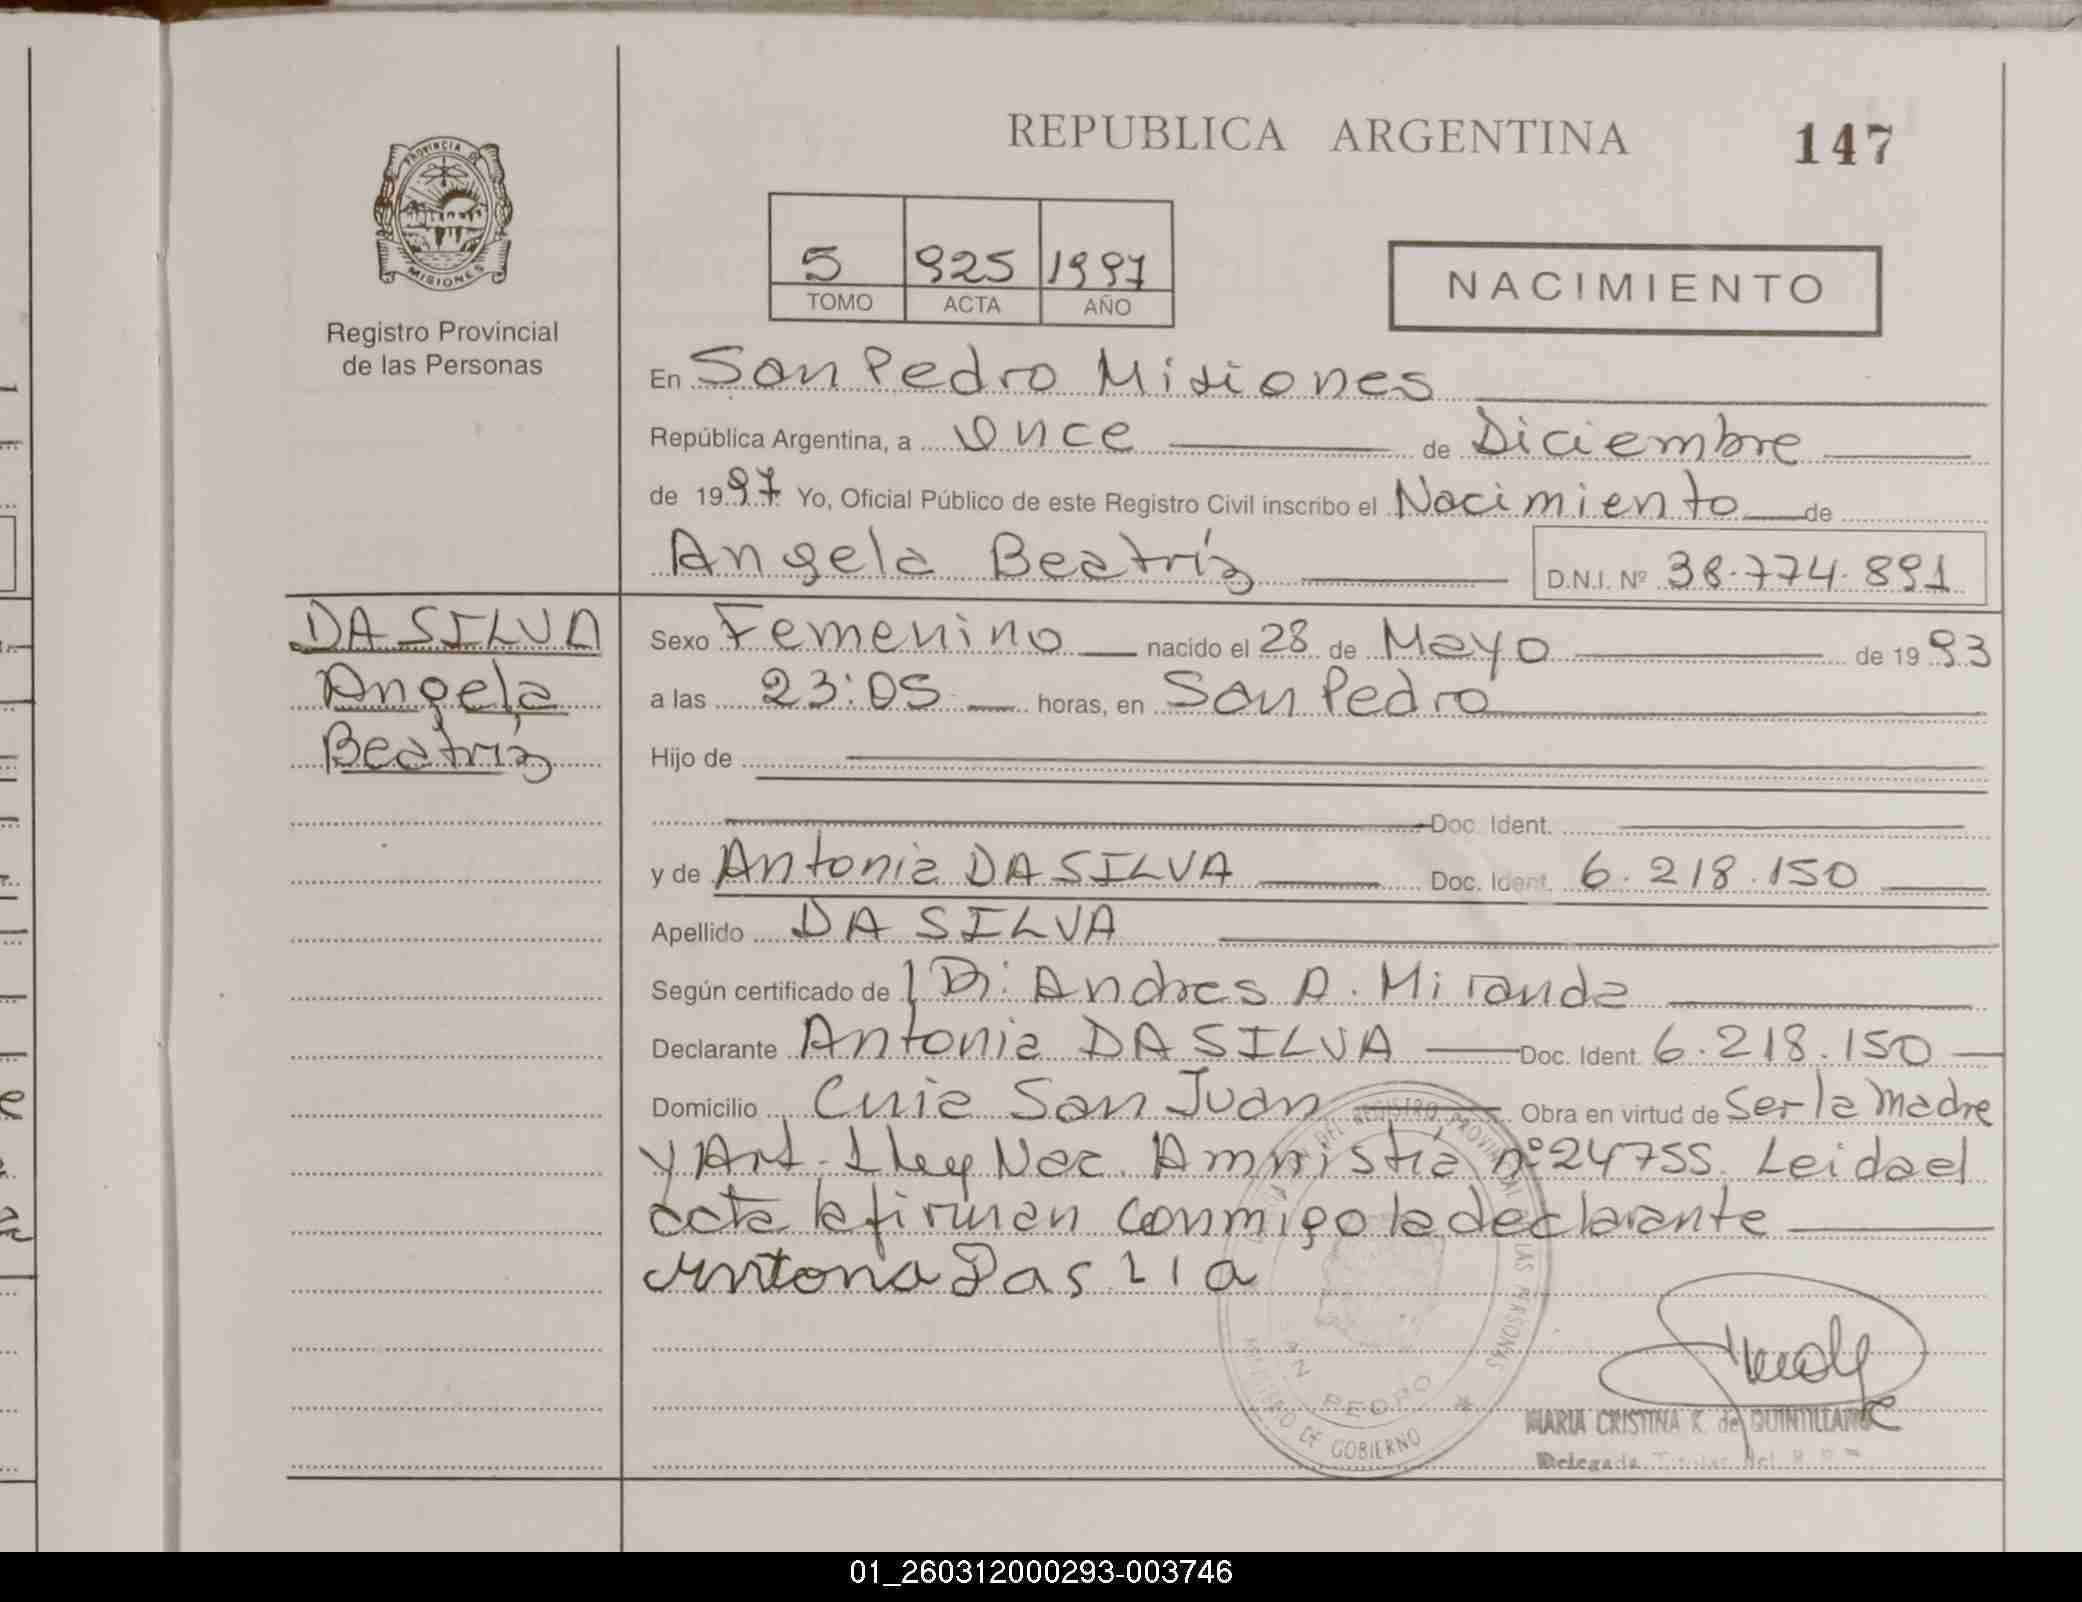 REPUBLICA ARGENTINA
147
PROVINCIA DE
MISIONES
Registro Provincial
de las Personas
5 925 1997
TOMO ACTA AÑO
NACIMIENTO
En San Pedro Misiones
República Argentina, a Once de Diciembre
de 1997 Yo, Oficial Público de este Registro Civil inscribo el Nacimiento de
Angela Beatríz D.N.I. Nº 38.774.891
DA SILVA
Angela
Beatríz
Sexo Femenino nacido el 28 de Mayo de 1993
a las 23:05 horas, en San Pedro
Hijo de
Doc. Ident.
y de Antonia DA SILVA Doc. Ident. 6.218.150
Apellido DA SILVA
Según certificado de Dr. Andres A. Miranda
Declarante Antonia DA SILVA Doc. Ident. 6.218.150
Domicilio Cuia San Juan Obra en virtud de Ser la Madre
y Art. 1 ley Nac. Amnistía nº 24755. Leida el
acta la firman conmigo la declarante
Antona Das 21a
DEL REGISTRO PROVINCIAL DE LAS PERSONAS
MINISTERIO DE GOBIERNO
SAN PEDRO
MARIA CRISTINA K. de QUINTILLANO
Delegada Titular del R.
01_260312000293-003746